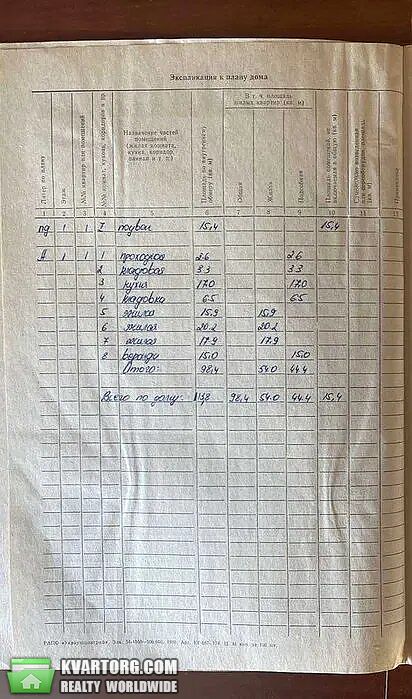 Экспликация к плану дома
Литер по плану
Этаж
Назначение частей помещений (жилая комната, кухня, коридор, ванная и т. п.)
Площадь по внутреннему обмеру (кв. м)
В т. ч. площадь жилых квартир (кв. м)
Общая
Жилая
Подсобная
1 2 3 4 5 6 7 8 9 10 11 12
пд 1 1 I подвал 15,4 15,4
А 1 1 1 проходная 2.6 2.6
2 кладовая 3.3 3.3
3 кухня 17.0 17.0
4 кладовка 6.5 6.5
5 жилая 15,9 15,9
6 жилая 20.2 20.2
7 жилая 17,9 17,9
8 веранда 15,0 15.0
Итого: 98,4 54.0 44.4
Всего по дому: 113,8 98,4 54.0 44.4 15,4
KVARTORG.COM
REALTY WORLDWIDE